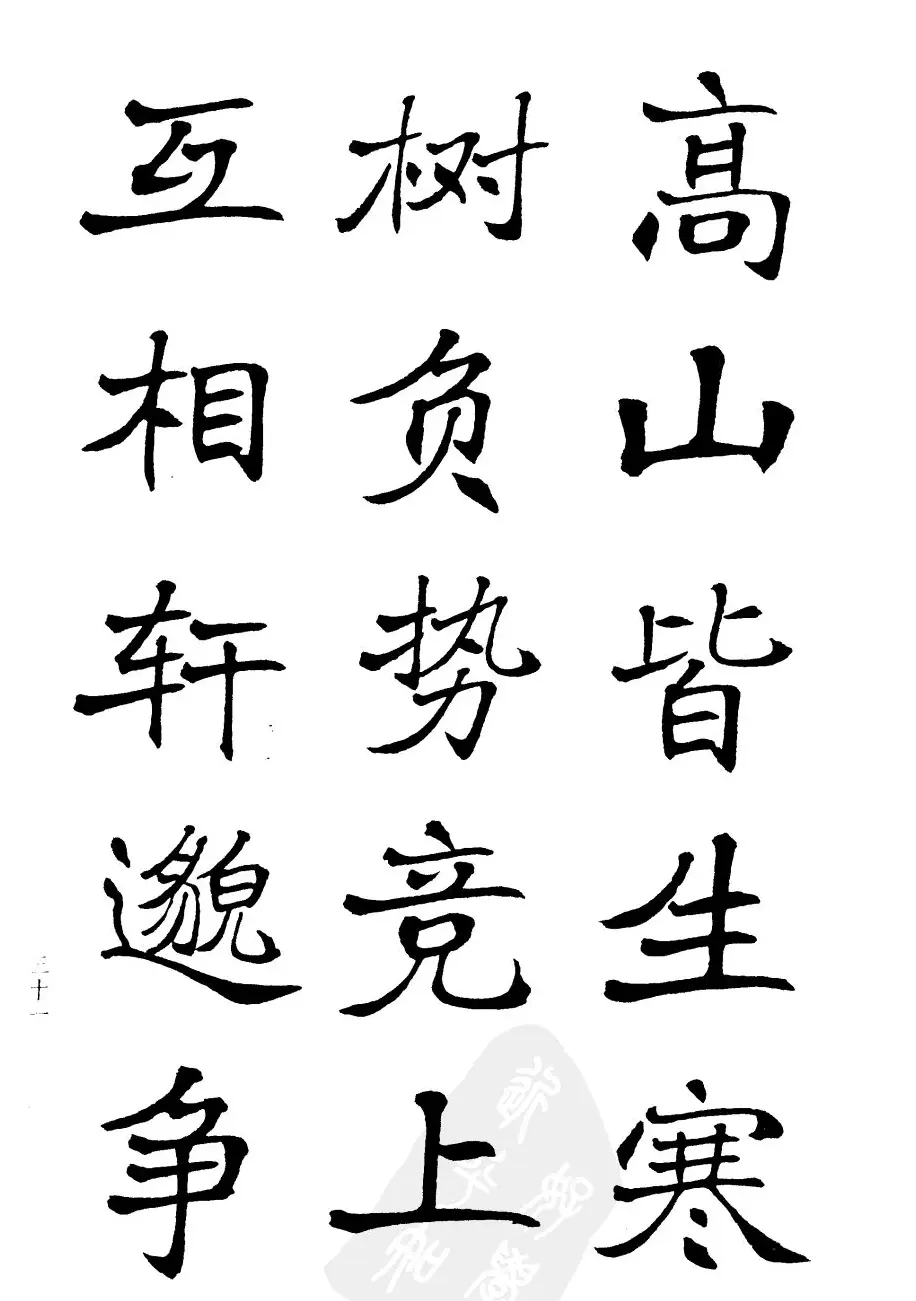 髙山皆生寒
树负势竞上
互相轩邈争
三十一